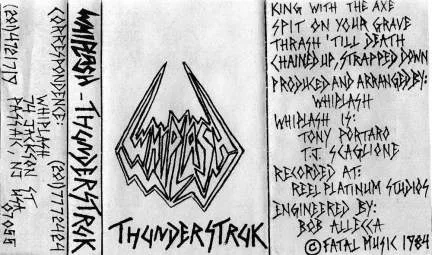 CORRESPONDENCE:
WHIPLASH
74 JACKSON ST
PASSAIC, NJ USA
07055
WHIPLASH - THUNDERSTRUK
WHIPLASH
THUNDERSTRUK
KING WITH THE AXE
SPIT ON YOUR GRAVE
THRASH 'TILL DEATH
CHAINED UP, STRAPPED DOWN
PRODUCED AND ARRANGED BY:
WHIPLASH
WHIPLASH IS:
TONY PORTARO
T.J. SCAGLIONE
RECORDED AT:
REEL PLATINUM STUDIOS
ENGINEERED BY:
BOB ALLECCA
© FATAL MUSIC 1984